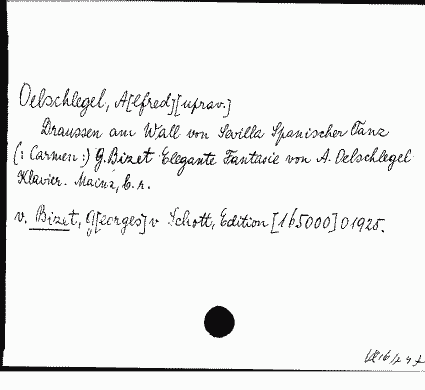 Oelschlegel, A[lfred][uprav.]
Draussen am Wall von Sevilla Spanischer Tanz
(: Carmen :) G. Bizet Elegante Fantasie von A. Oelschlegel
Klavier. Mainz, b. r.
v. Bizet, G[eorges] v Schott, Edition [165000] 01925.